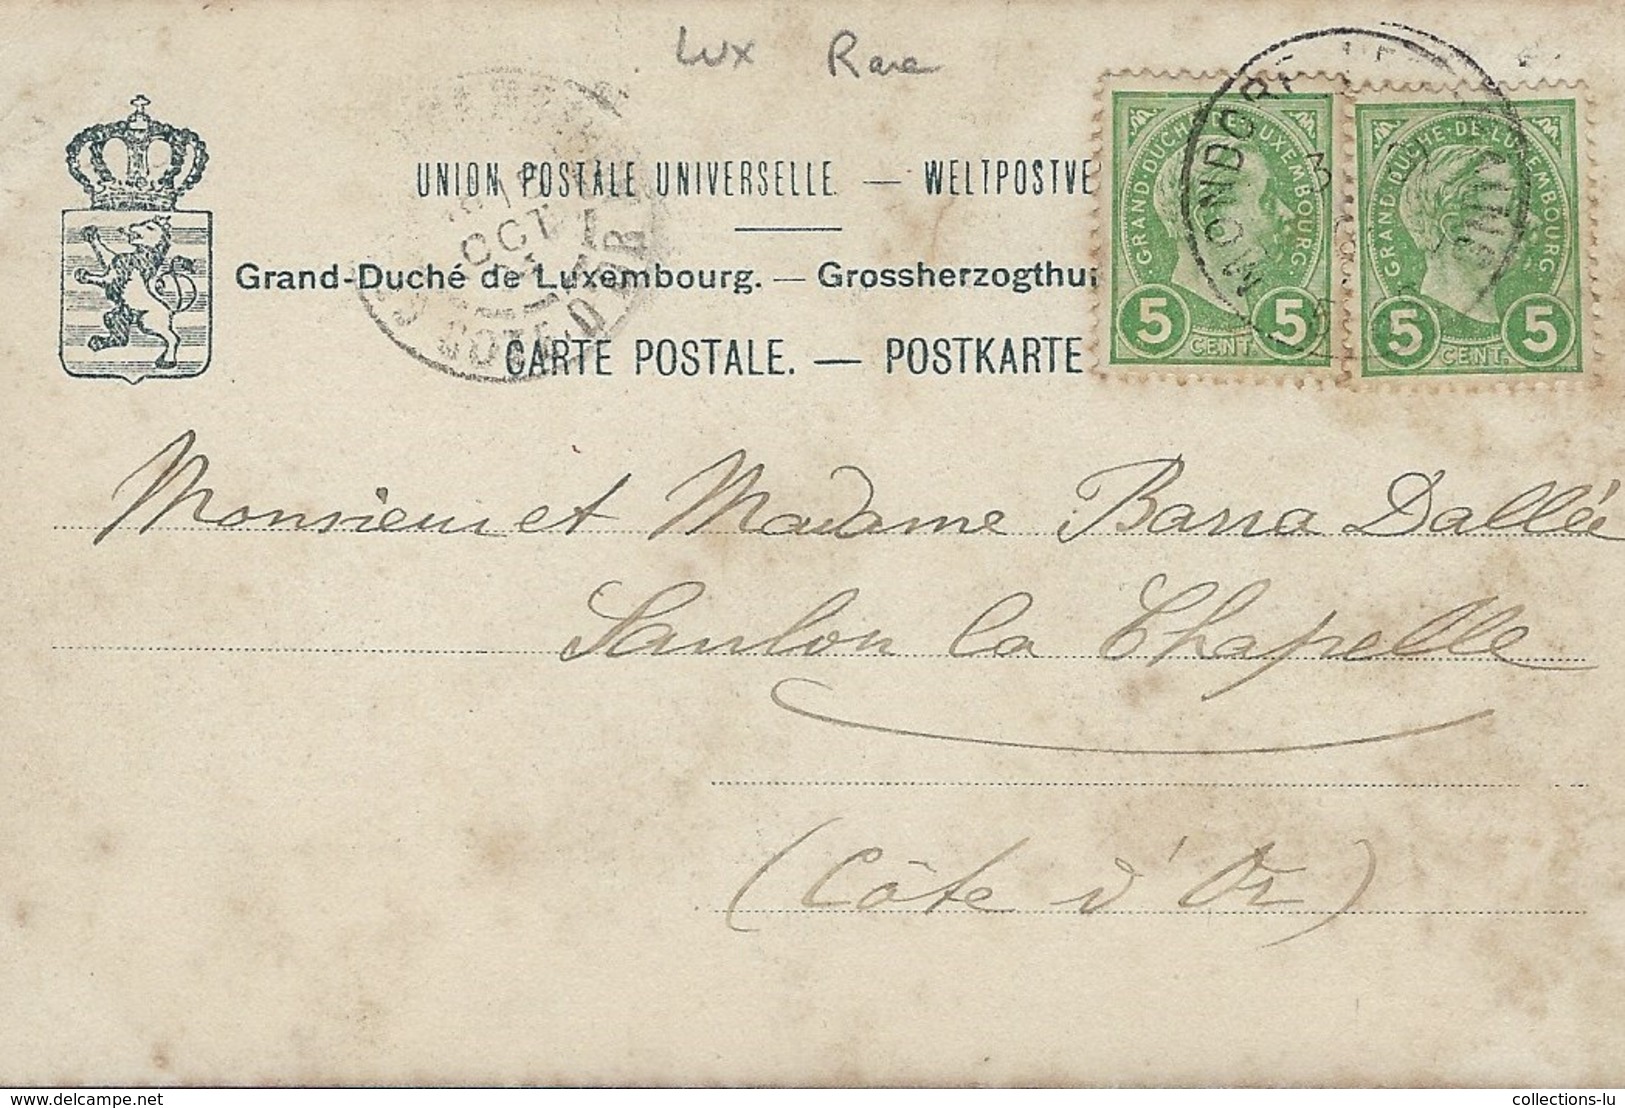 Lux Rare
UNION POSTALE UNIVERSELLE. — WELTPOSTVE
Grand-Duché de Luxembourg. — Grossherzogthu
CARTE POSTALE. — POSTKARTE
GRAND-DUCHÉ-DE-LUXEMBOURG
5 CENT. 5
GRAND-DUCHÉ-DE-LUXEMBOURG
5 CENT. 5
MONDORF
BAINS
OCT
COTE-D'OR
Monsieur et Madame Barra Dallée
Saulon la Chapelle
(Côte d'Or)
delcampe.net
collections-lu